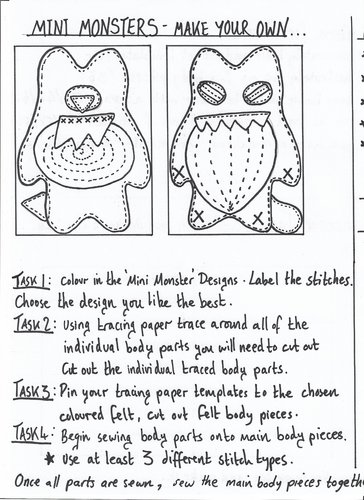 MINI MONSTERS - MAKE YOUR OWN...
TASK 1: Colour in the 'Mini Monster' Designs. Label the stitches.
Choose the design you like the best.
TASK 2: Using tracing paper trace around all of the
individual body parts you will need to cut out
Cut out the individual traced body parts.
TASK 3: Pin your tracing paper templates to the chosen
coloured felt, cut out felt body pieces.
TASK 4: Begin sewing body parts onto main body pieces.
★ Use at least 3 different stitch types.
Once all parts are sewn, sew the main body pieces togeth